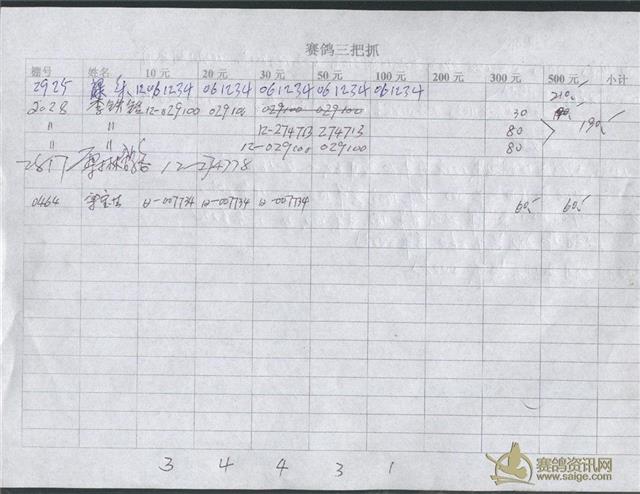 赛鸽三把抓
棚号 姓名 10元 20元 30元 50元 100元 200元 300元 500元 小计
2925 12061234 061234 061234 061234 061234 210
2028 12-029100 029100 029100 029100 30
〃 〃 12-274713 274713 80 190
〃 〃 12-029100 029100 80
12-274778
0464 12-007734 12-007734 12-007734 60 60
3 4 4 3 1
赛鸽资讯网
www.saige.com